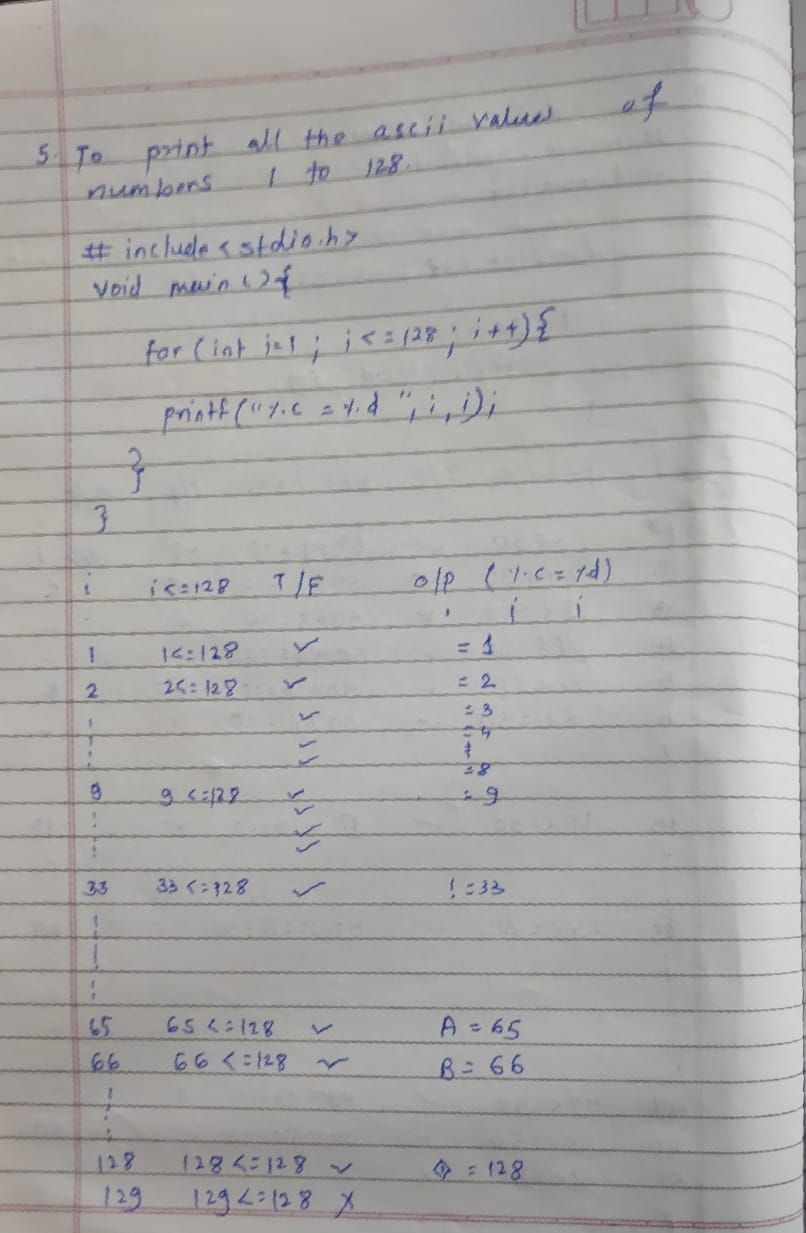 5. To print all the ascii values of
numbers 1 to 128.
# include <stdio.h>
void main () {
for (int i=1 ; i<=128 ; i++) {
printf ("%c = %d ", i, i);
}
}
i i<=128 T/F o/p (%c = %d)
i i
1 1<=128 ✓ = 1
2 2<=128 ✓ = 2
✓ = 3
✓ = 4
✓
= 8
9 9<=128 ✓ = 9
✓
✓
✓
33 33<=128 ✓ ! = 33
65 65<=128 ✓ A = 65
66 66<=128 ✓ B = 66
128 128<=128 ✓ = 128
129 129<=128 X